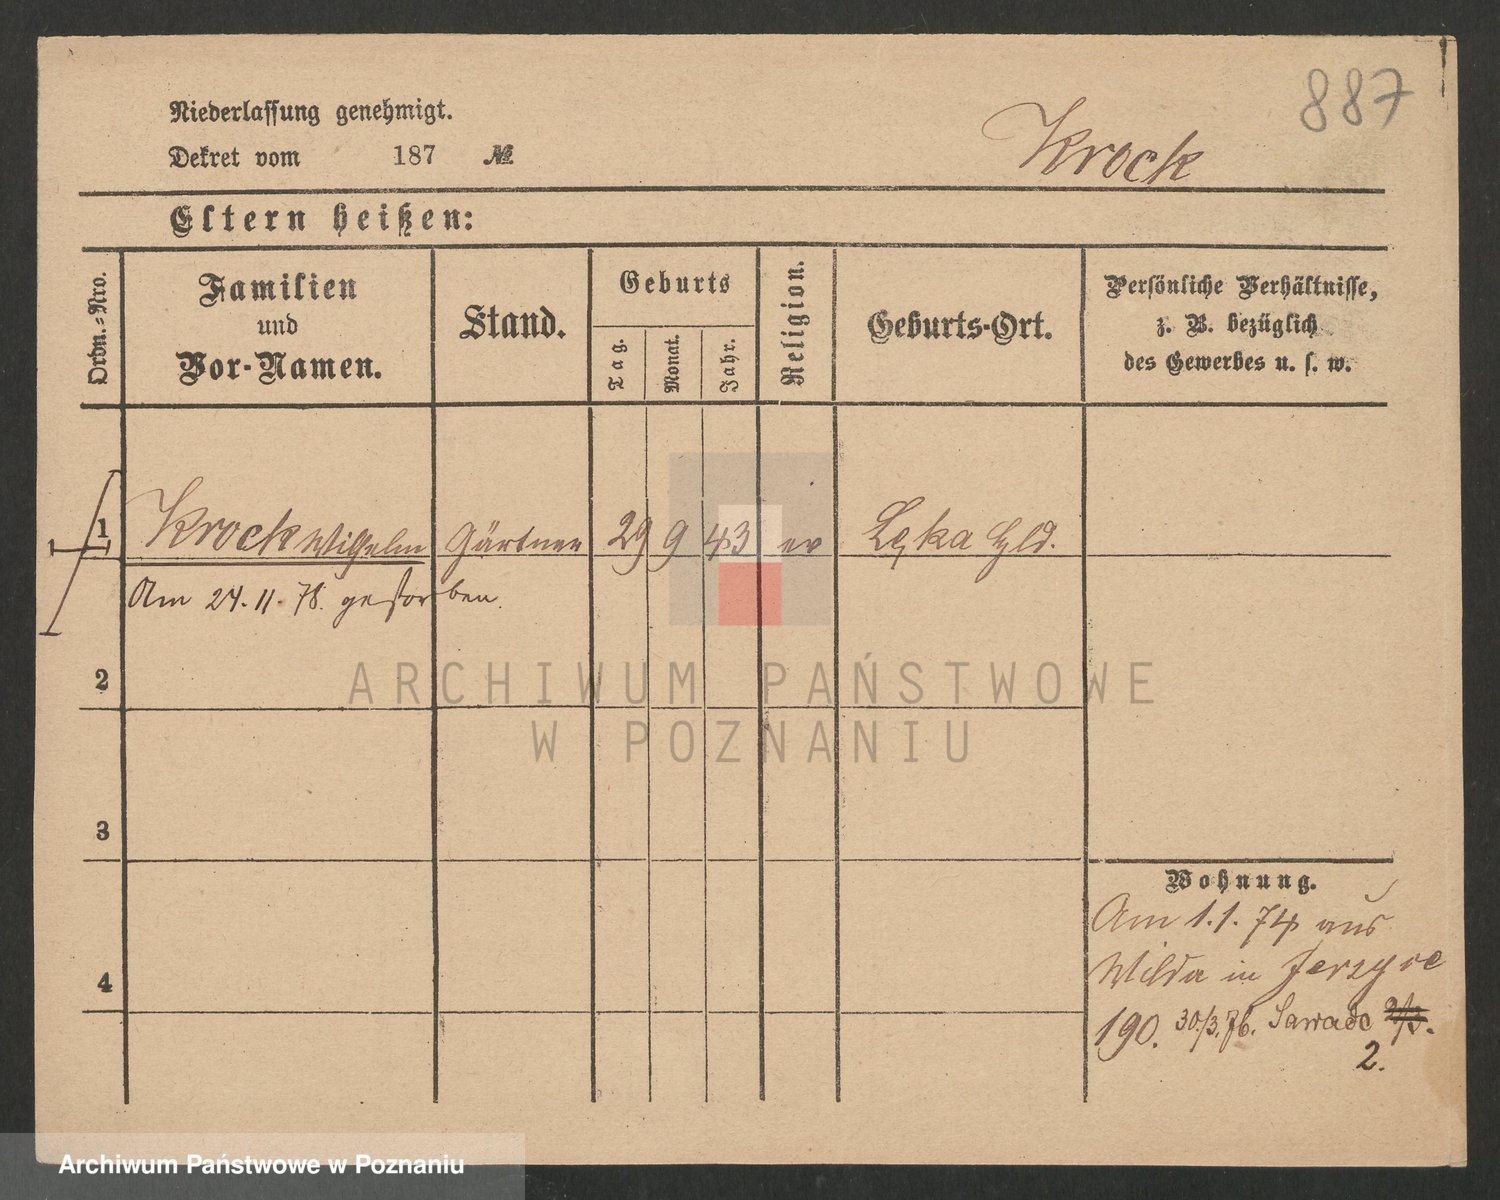 887
Niederlassung genehmigt.
Dekret vom 187 №
Krock
Eltern heißen:
Ordn.-Nro.
Familien
und
Vor-Namen.
Stand.
Geburts
Tag.
Monat.
Jahr.
Religion.
Geburts-Ort.
Persönliche Verhältnisse,
z. B. bezüglich
des Gewerbes u. s. w.
1 Krock Wilhelm Gärtner 29 9 43 ev Lęka Hld.
Am 24.11.78. gestorben.
2
3
4
Wohnung.
Am 1.1.74 aus
Wilda in Jerzyce
190. 30/3.76. Sawade
2.
ARCHIWUM PAŃSTWOWE
W POZNANIU
Archiwum Państwowe w Poznaniu